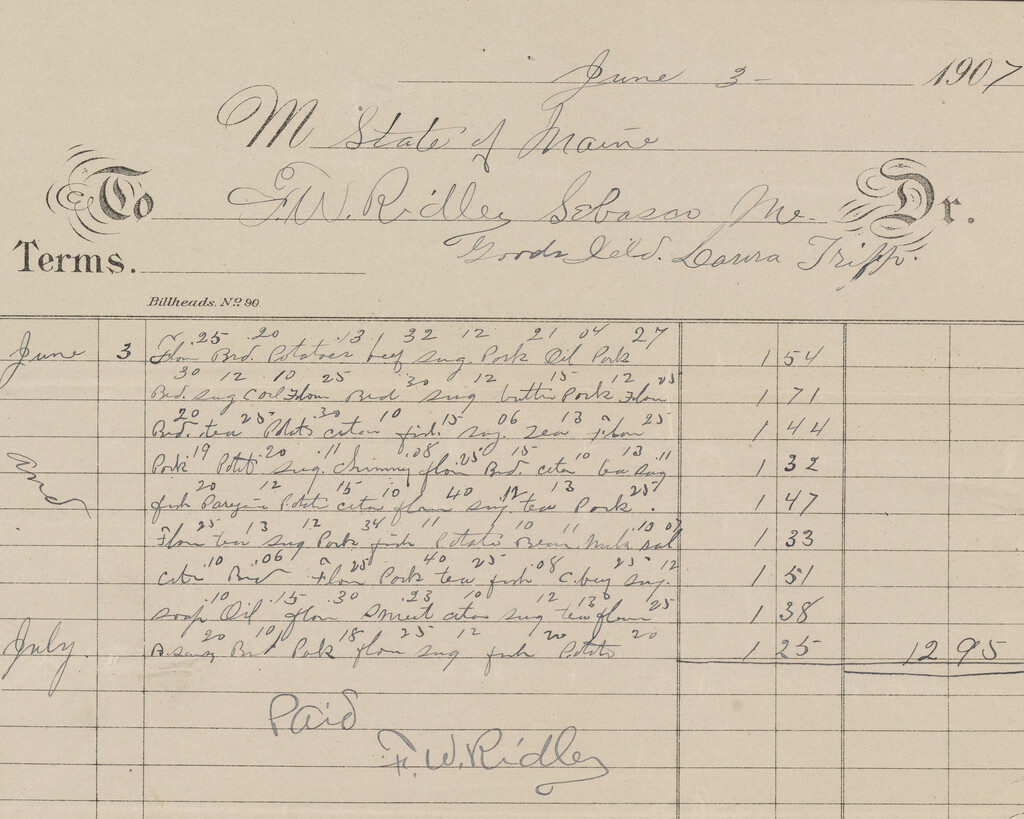 June 3 - 1907
M State of Maine
To F. W. Ridley Sebasco Me. Dr.
Goods Deld. Laura Tripp.
Terms.
Billheads. No. 90.
.25 .20 .13 32 12 21 04 27
June 3 Flour Brd. Potatoes beef sug. Pork Oil Pork 1 54
30 12 10 25 30 12 15 12 25
Brd. sug Flour Brd sug butter Pork Flour 1 71
20 25 .30 10 15 06 13 25
Brd. tea Potato fish. sug. tea Flour 1 44
19 20 .11 .08 .25 15 10 13 .11
and Pork Potato sug. Chimney flour Brd. tea sug 1 32
20 12 15 10 40 .12 13 25
fish Potato flour sug tea Pork. 1 47
25 13 12 34 11 10 11 .10 07
Flour tea sug Pork fish Potato Bean sal 1 33
.10 .06 25 40 25 .08 25 12
Brd Flour Pork tea fish sug. 1 51
.10 .15 .30 .23 10 12 13 25
soap Oil flour sug tea flour 1 38
20 10 18 25 12 20 20
July. Brd Pork flour sug fish Potato 1 25 12 95
Paid
F. W. Ridley